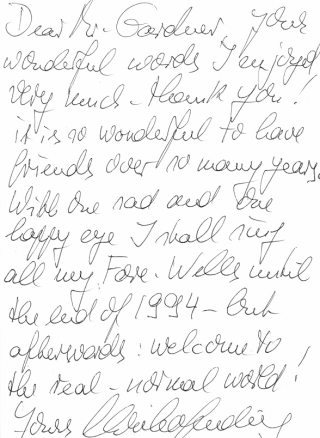 Dear Mr. Gardner, your
wonderful words I enjoyed
very much - thank you!
it is so wonderful to have
friends over so many years.
With one sad and one
happy eye I shall sing
all my Fare-Wells until
the end of 1994 - but
afterwards: welcome to
the real - normal world!
Yours